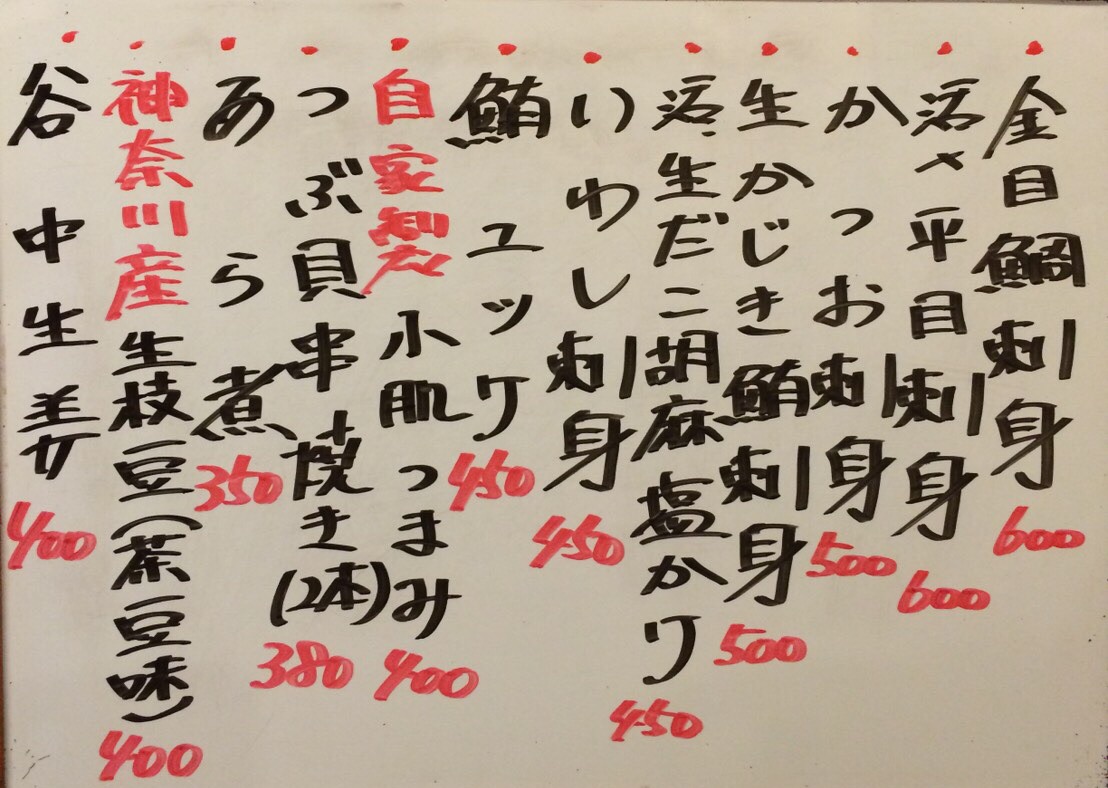 金目鯛刺身 600
活〆平目刺身 600
かつお刺身 500
生かじき鮪刺身 500
活生だこ胡麻塩かり 450
いわし刺身 450
鮪ユッケ 450
自家製小肌つまみ 400
つぶ貝串焼き(2本) 380
あら煮 350
神奈川産生枝豆(茶豆味) 400
谷中生姜 400